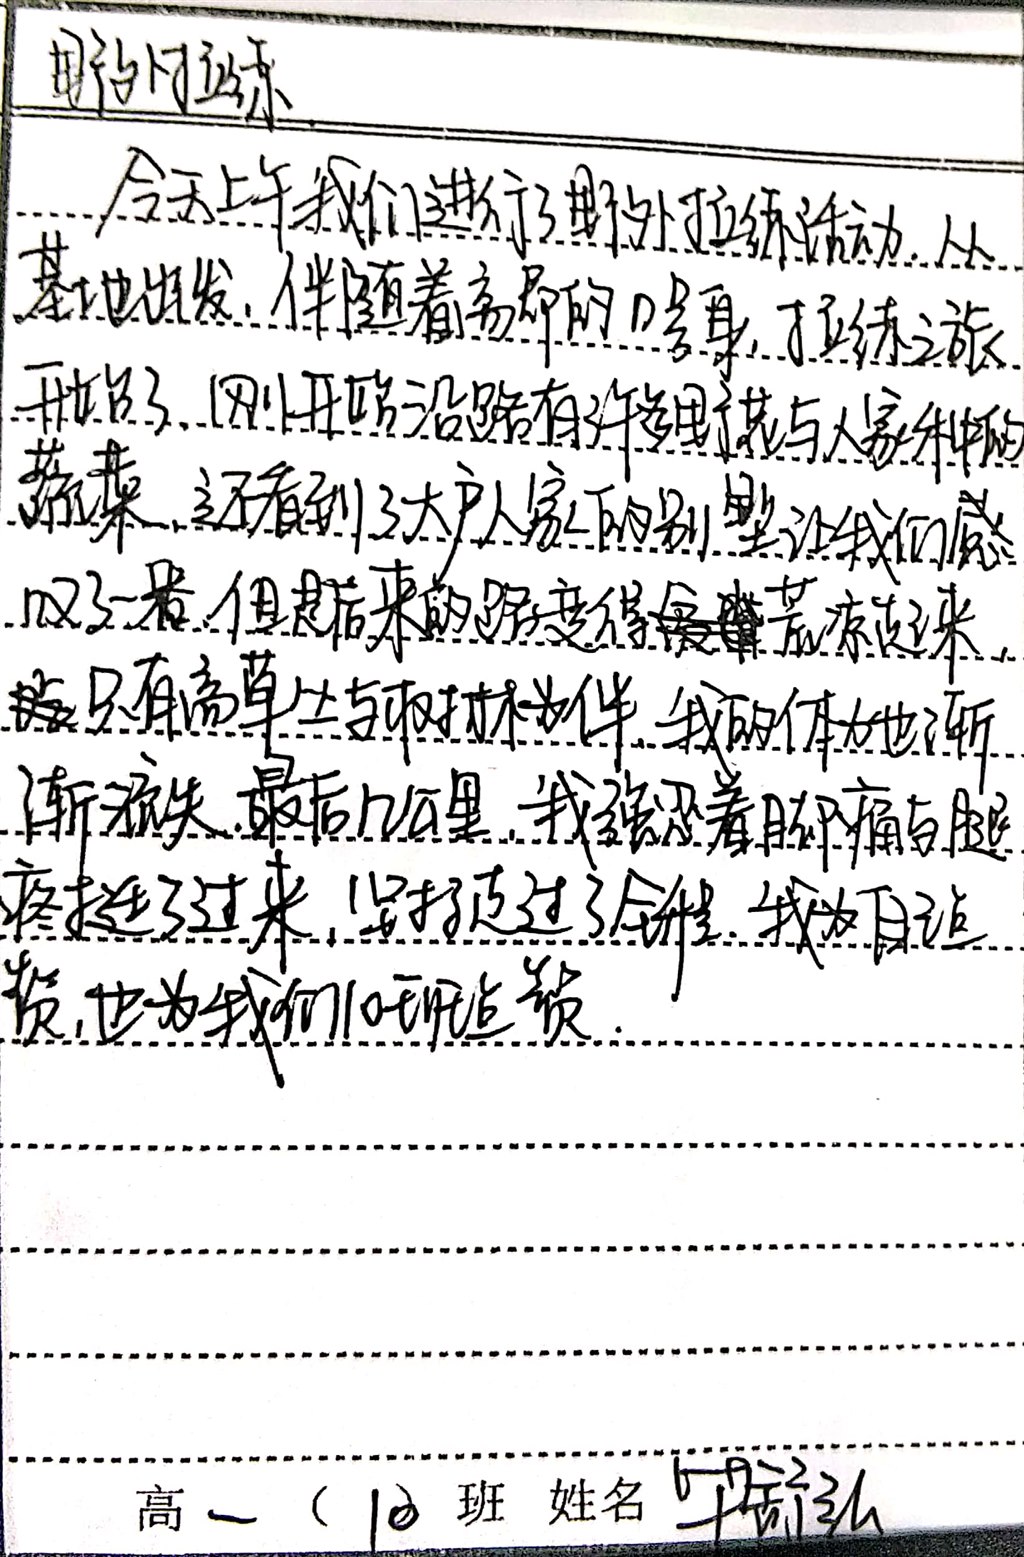 野外拉练
今天上午我们进行了野外拉练活动.从
基地出发,伴随着高昂的口号声,拉练之旅
开始了,刚开始沿路有许多野花与人家种的
蔬菜,还看到了大户人家的别墅让我们感
叹了一番.但是后来的路变得荒凉起来,
只有高草丛与树林为伴.我的体力也渐
渐流失.最后几公里,我强忍着脚痛与腿
疼挺了过来,坚持走过了全程.我为自己点
赞,也为我们10班点赞.
高一(10班 姓名